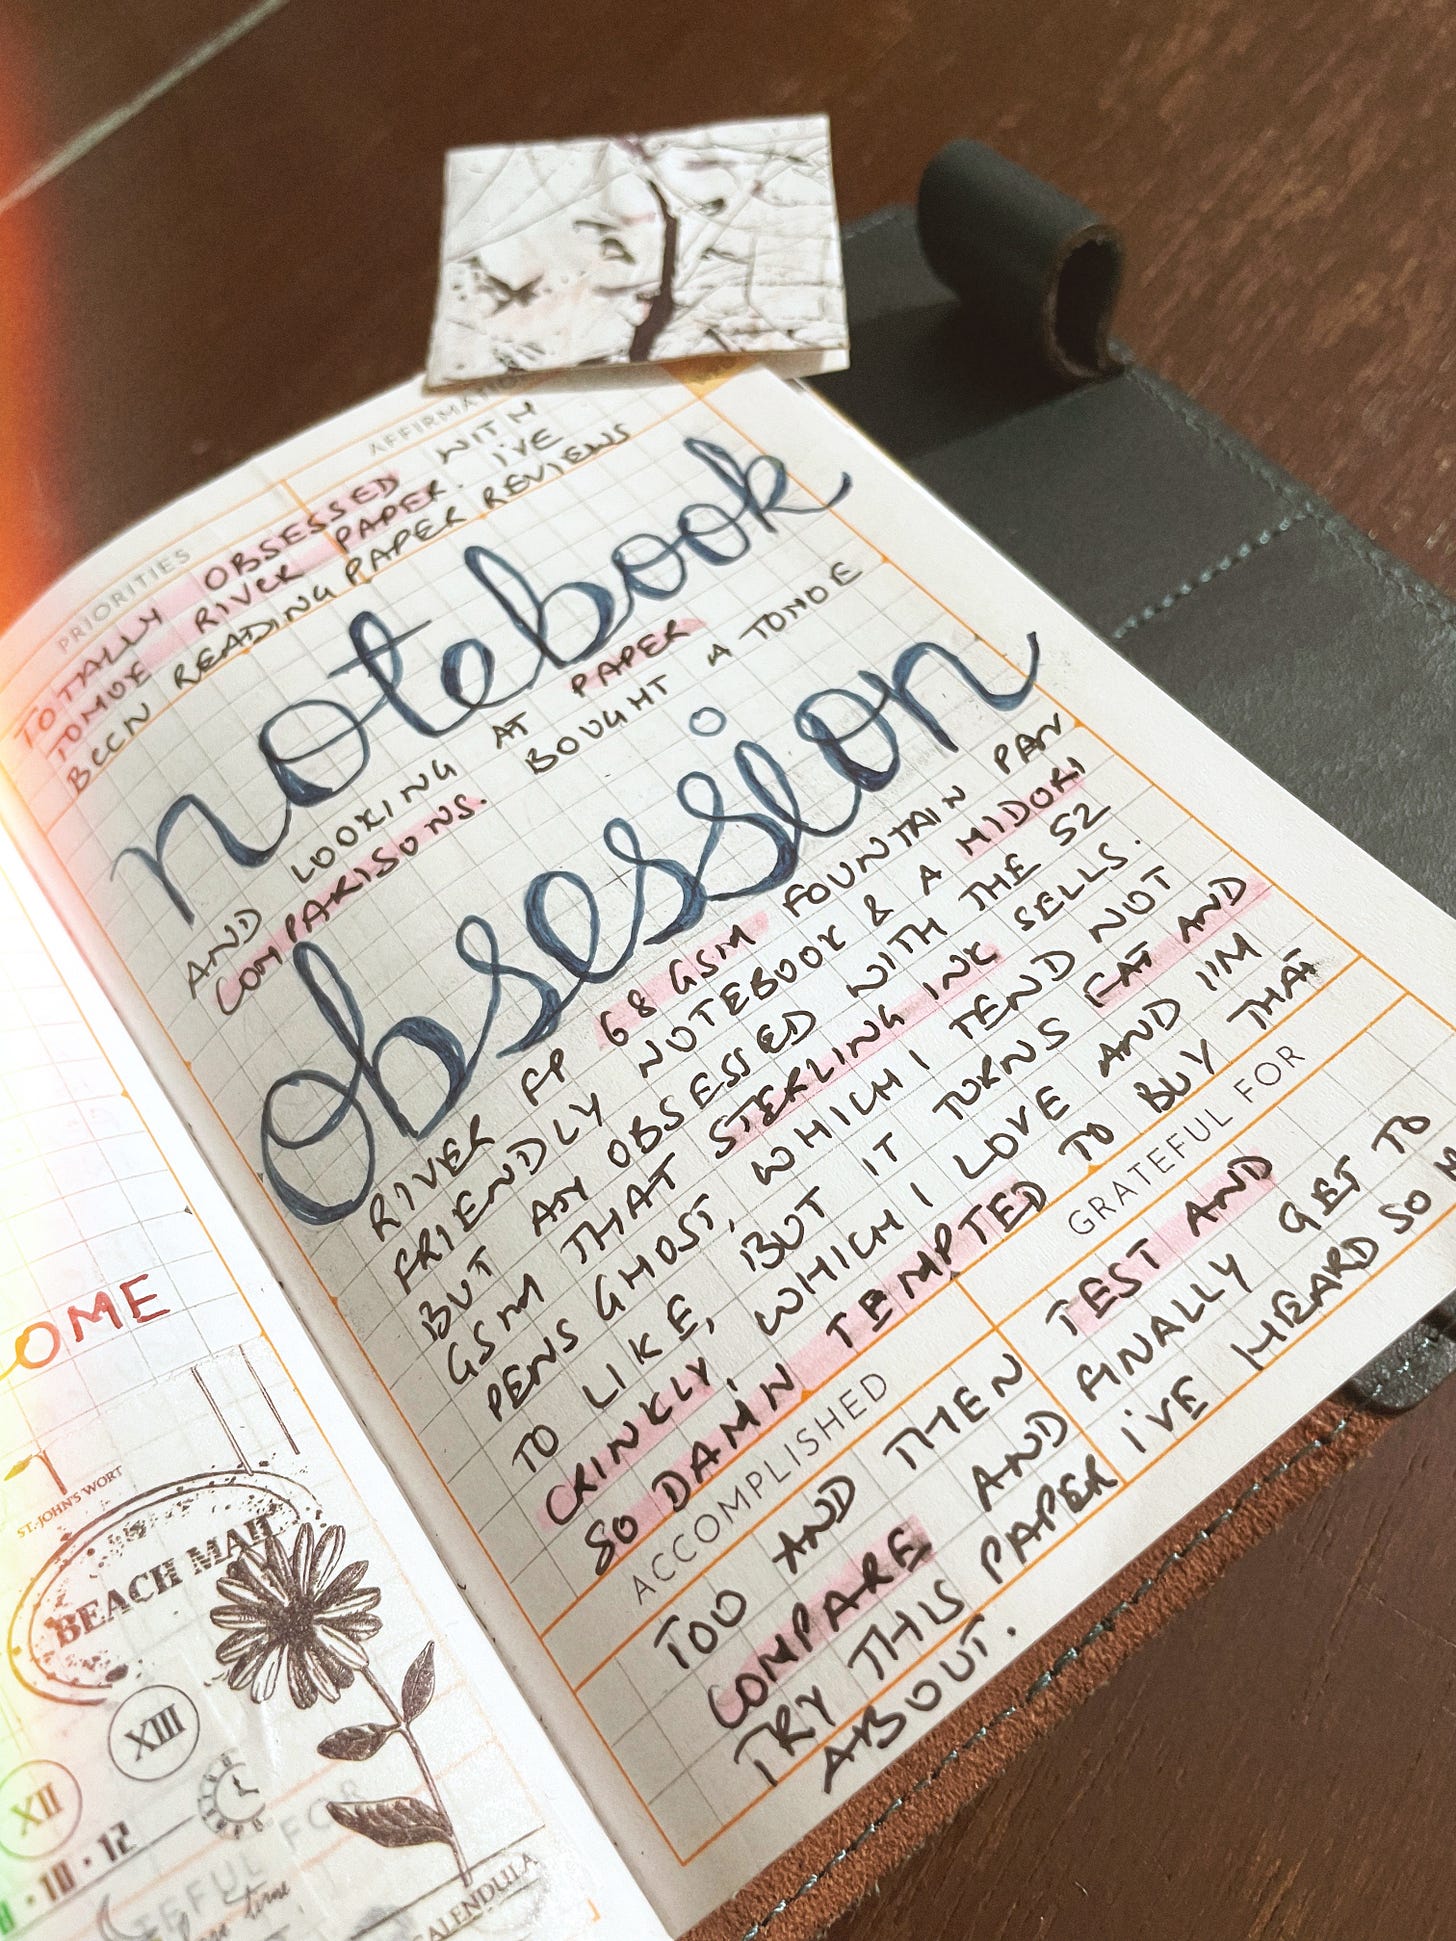 OME
ST. JOHN'S WORT
BEACH MAIL
XIII
XII
10 · 12
FOR
EFUL
time
CALENDULA
AFFIRMATIO
PRIORITIES
TOTALLY OBSESSED WITH
TOMOE RIVER PAPER. I'VE
BEEN READING PAPER REVIEWS
notebook
AND LOOKING AT PAPER
COMPARISONS. BOUGHT A TOMOE
obsession
RIVER FP 68 GSM FOUNTAIN PAN
FRIENDLY NOTEBOOK & A MIDORI
BUT AM OBSESSED WITH THE 52
GSM THAT STERLING INK SELLS.
PENS GHOST, WHICH I TEND NOT
TO LIKE, BUT IT TURNS FAT AND
CRINKLY, WHICH I LOVE AND I'M
SO DAMN TEMPTED TO BUY THAT
ACCOMPLISHED
GRATEFUL FOR
TOO AND THEN TEST AND
COMPARE AND FINALLY GET TO
TRY THIS PAPER I'VE HEARD SO
ABOUT.